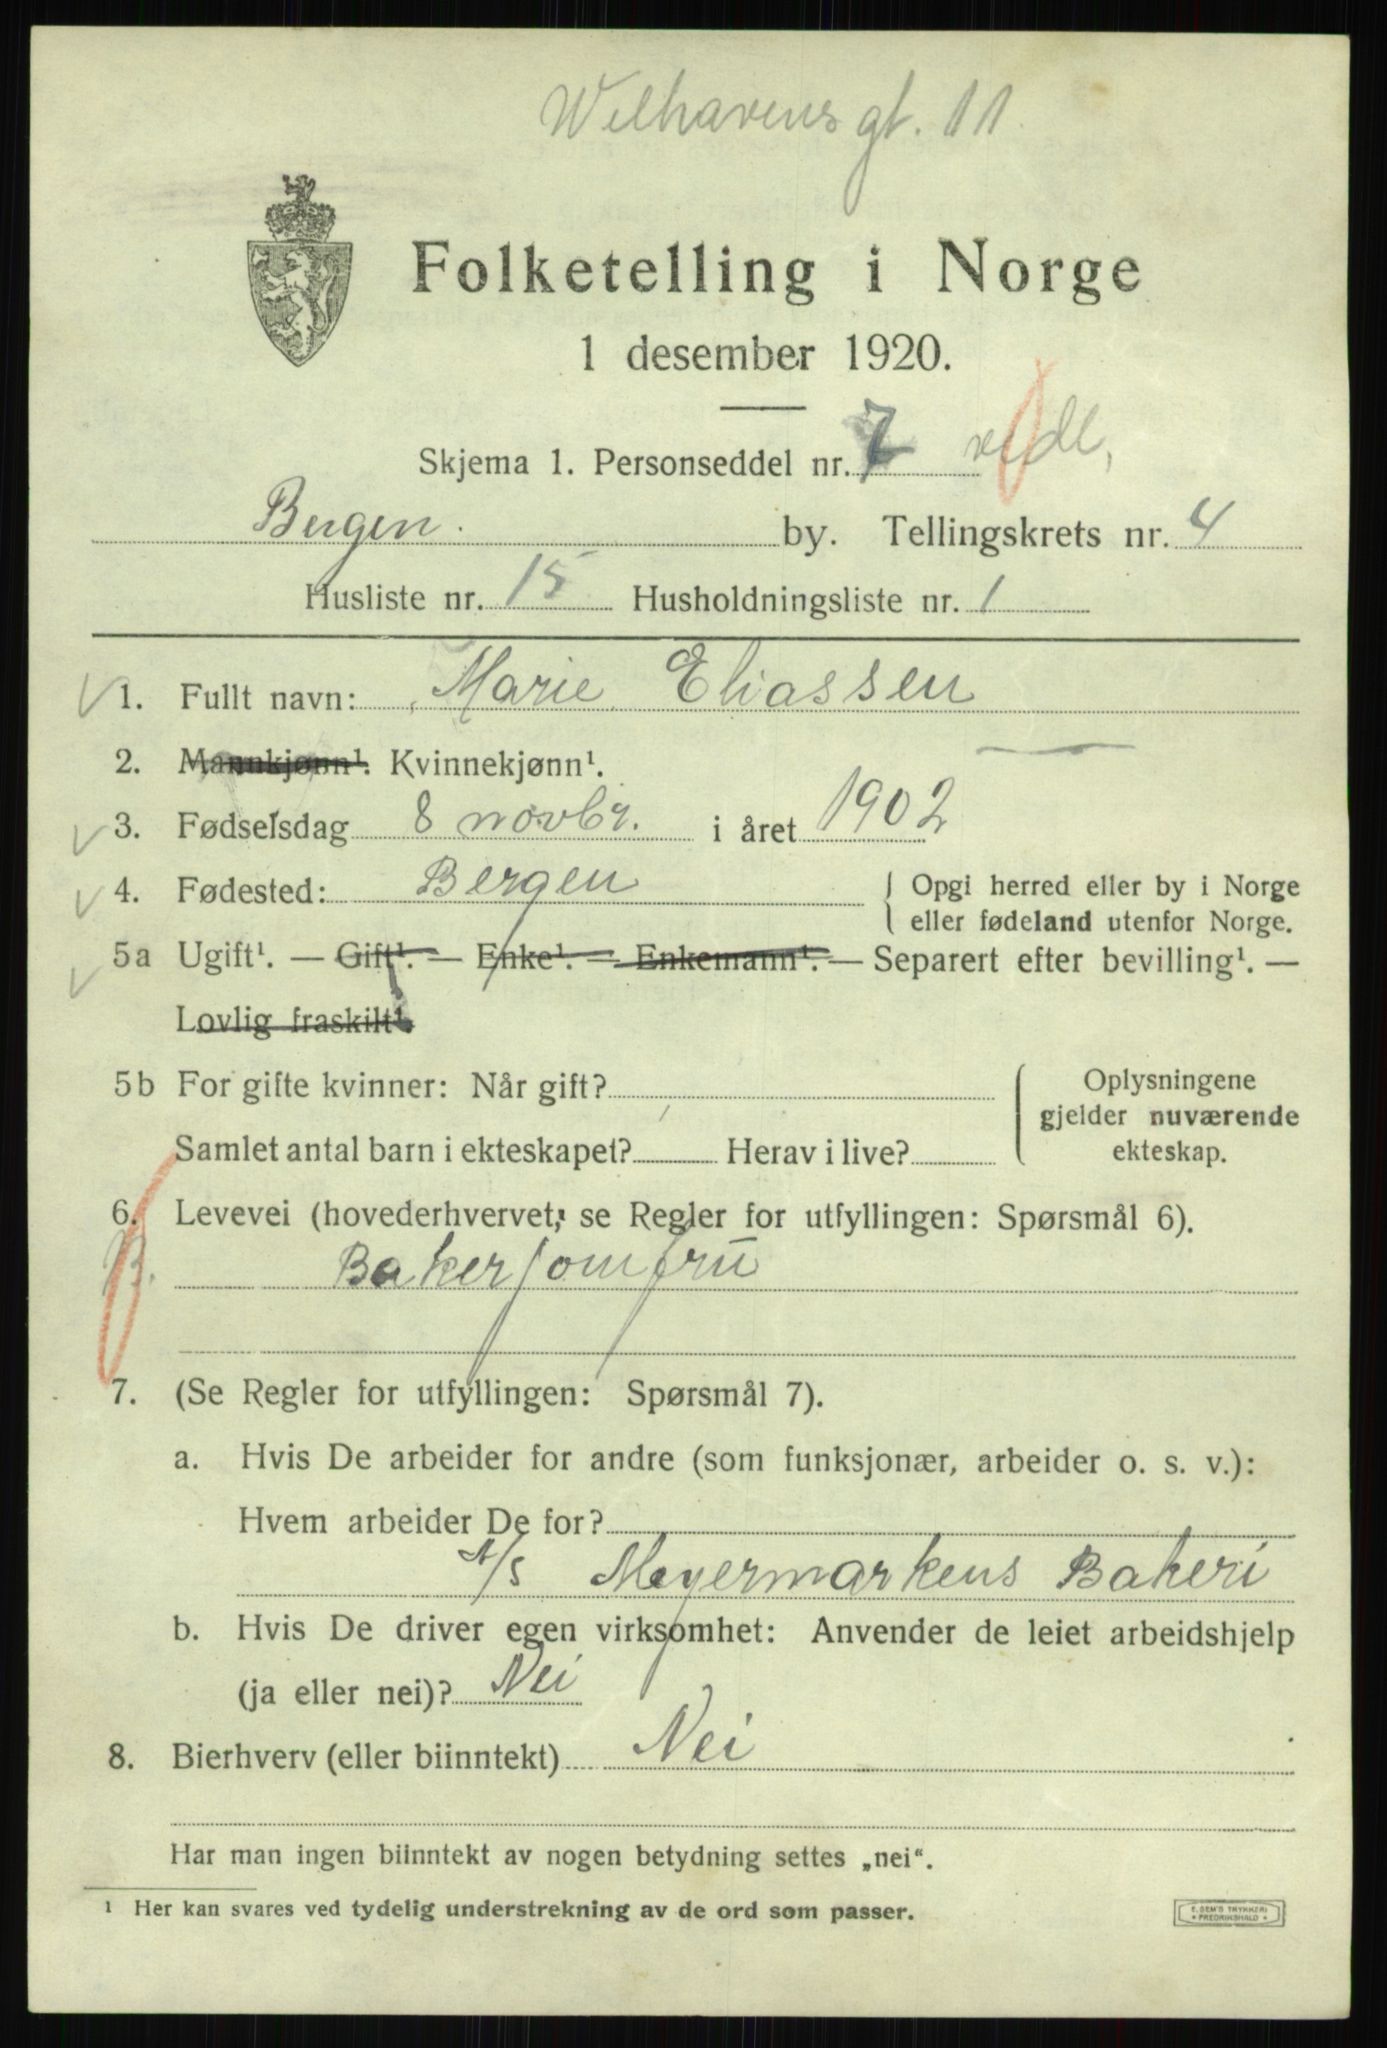 Welhavens gt. 11.
Folketelling i Norge
1 desember 1920.
Skjema 1. Personseddel nr. 7
Bergen. by. Tellingskrets nr. 4
Husliste nr. 15 Husholdningsliste nr. 1
1. Fullt navn: Marie Eliassen
2. Mannkjønn¹. Kvinnekjønn¹.
3. Fødselsdag 8 novbr. i året 1902
4. Fødested: Bergen { Opgi herred eller by i Norge
eller fødeland utenfor Norge.
5a Ugift¹. — Gift¹. — Enke¹. — Enkemann¹. — Separert efter bevilling¹. —
Lovlig fraskilt¹.
5b For gifte kvinner: Når gift?
Samlet antal barn i ekteskapet? Herav i live?
Oplysningene
gjelder nuværende
ekteskap.
6. Levevei (hovederhvervet; se Regler for utfyllingen: Spørsmål 6).
B. Bakerjomfru
7. (Se Regler for utfyllingen: Spørsmål 7).
a. Hvis De arbeider for andre (som funksjonær, arbeider o. s. v.):
Hvem arbeider De for?
A/S Meyermarkens Bakeri
b. Hvis De driver egen virksomhet: Anvender de leiet arbeidshjelp
(ja eller nei)? Nei
8. Bierhverv (eller biinntekt) Nei
Har man ingen biinntekt av nogen betydning settes „nei“.
¹ Her kan svares ved tydelig understrekning av de ord som passer.
E. SEM'S TRYKKERI
• FREDRIKSHALD •